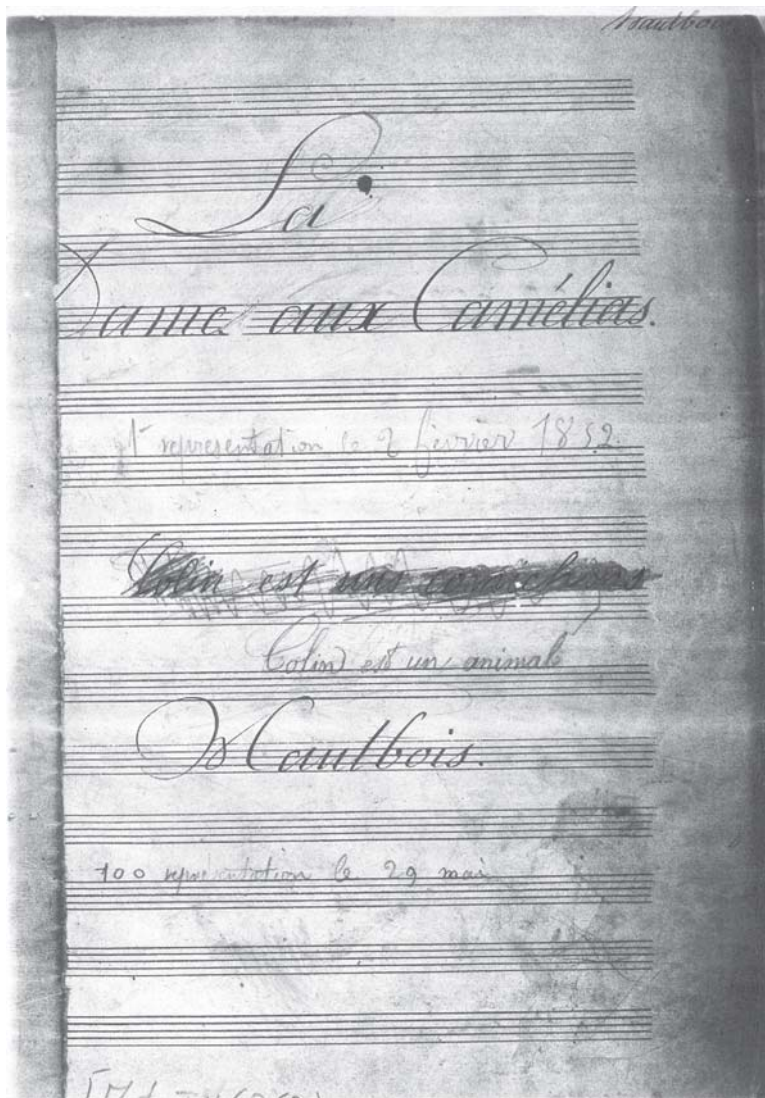 La
Dame aux Camélias.
1t representation le 2 fevrier 1852.
Colin est un cornichon
Colin est un animal
Hautbois.
100 représentation le 29 mai